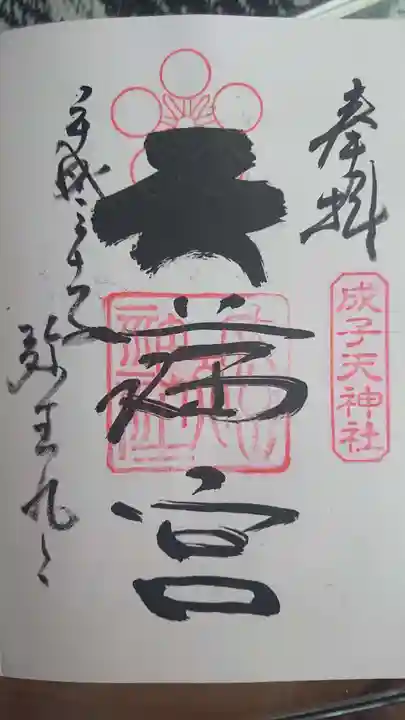 奉拝
成子天神社
天満宮
平成三十年
弥生九日